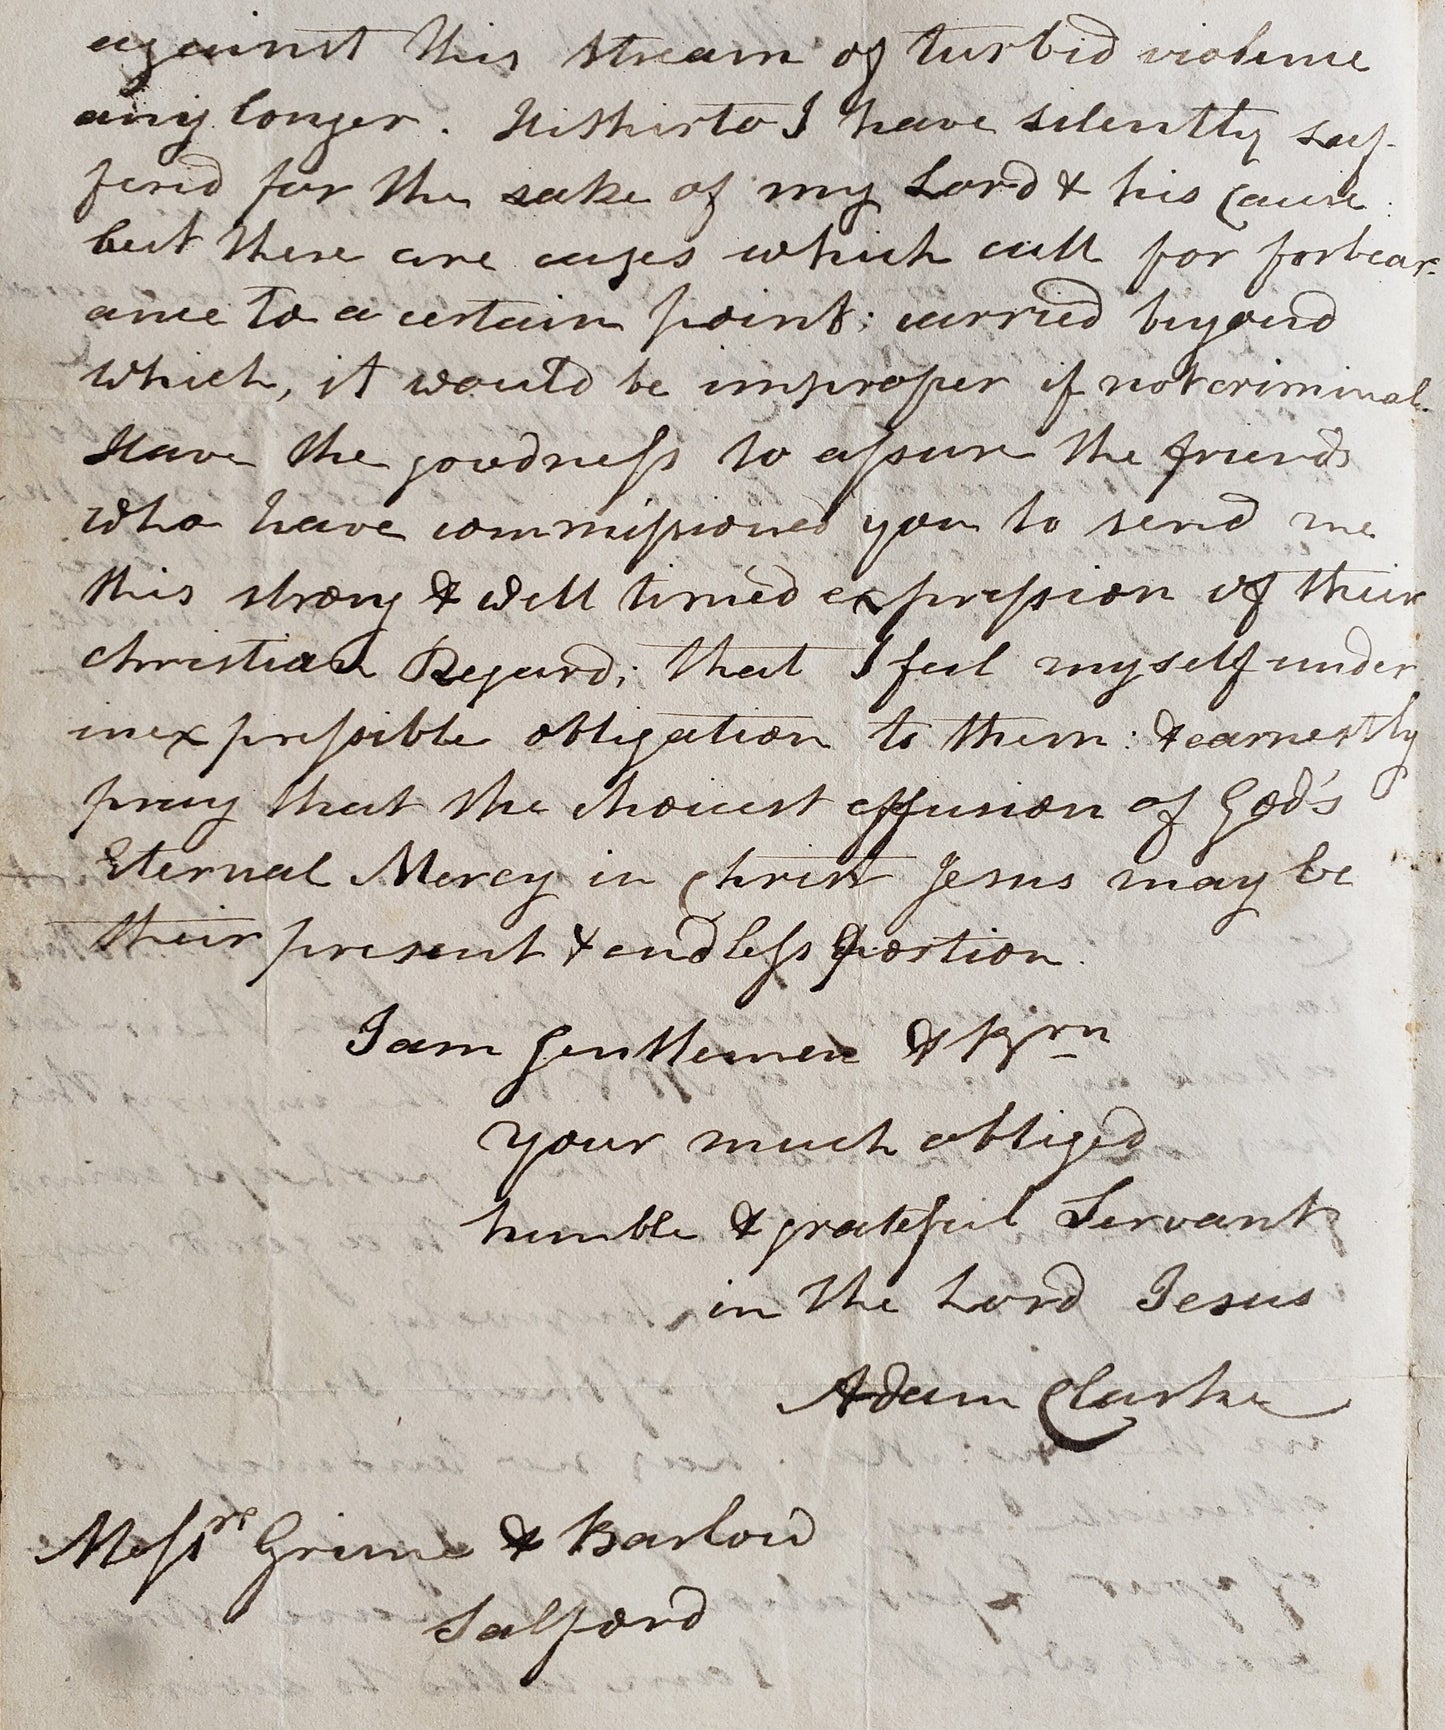 against this stream of turbid violence
any longer. Hitherto I have silently suf-
fered for the sake of my Lord & his cause:
but there are cases which call for forbear-
ance to a certain point: carried beyond
which, it would be improper if not criminal.
Have the goodness to assure the friends
who have commissioned you to send me
this strong & well timed expression of their
christian Regard; that I feel myself under
inexpressible obligation to them: & earnestly
pray that the choicest effusion of God's
Eternal Mercy in Christ Jesus may be
their present & endless portion.
I am Gentlemen & Brn
your much obliged
humble & grateful Servant
in the Lord Jesus
Adam Clarke
Messrs Grime & Barlow
Salford